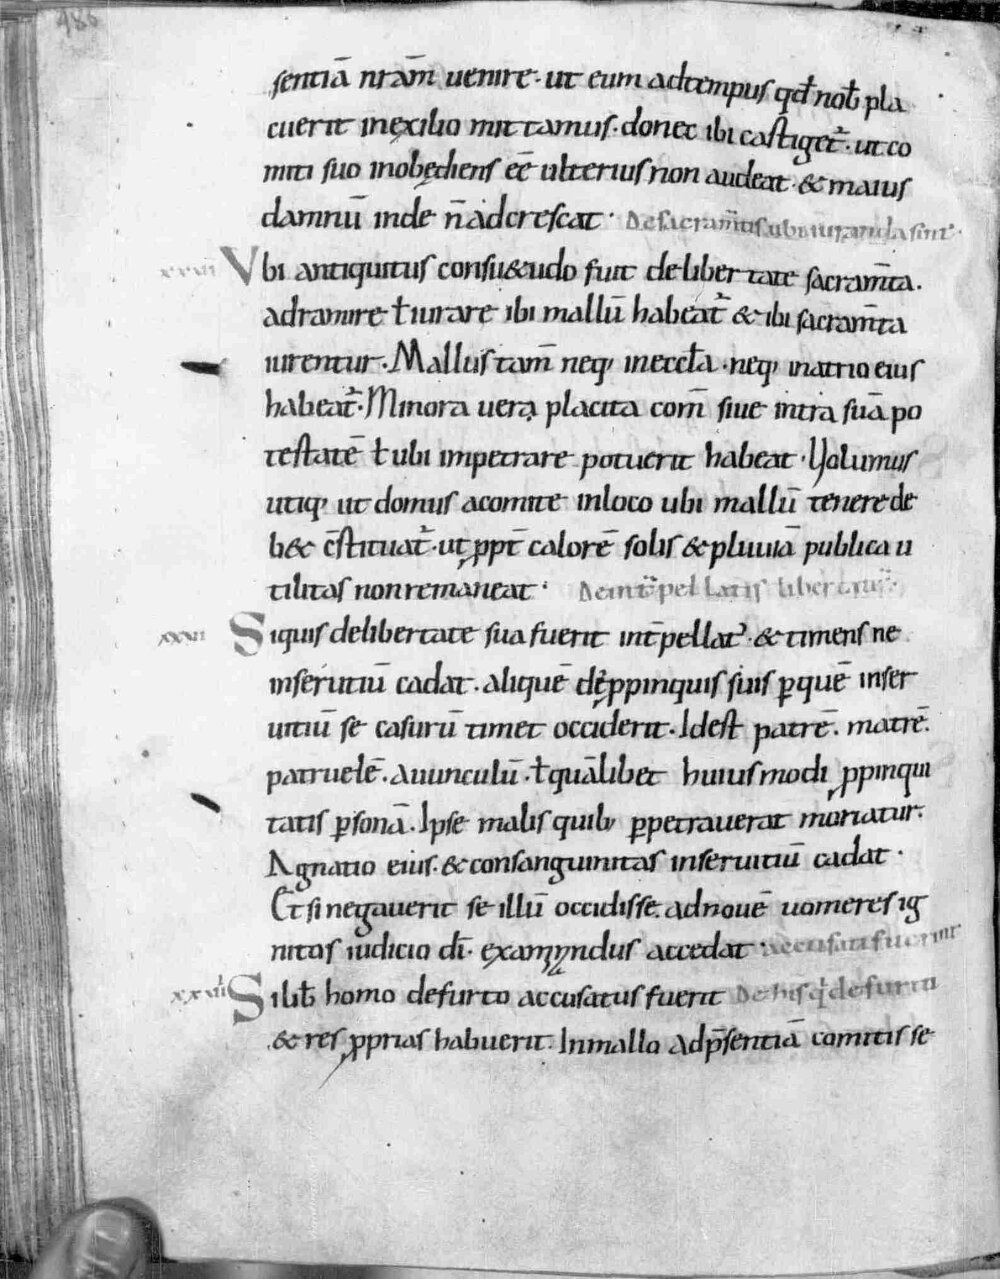 486
sentiā nr̄am uenire · ut eum adtempus qd̄ nob̄ pla
cuerit inexilio mittamus · donec ibi castiget᷑ · ut co
miti suo inobędiens eē ulterius non audeat · & maius
damnū inde n̄ adcrescat · De sacram̄tis ubi iuranda sint ·
xxvi Vbi antiquitus consu&udo fuit delibertate sacram̄ta .
adramire ł iurare ibi mallū habeat᷑ & ibi sacram̄ta
iurentur . Mallus tam̄ neq; ineccła · neq; inatrio eius
habeat᷑ · Minora uera placita com̄ siue intra suā po
testatē ł ubi impetrare potuerit habeat · Volumus
utiq; ut domus acomite inloco ubi mallū tenere de
b& c̄stituat᷑ · ut ꝓpt̄ calorē solis & pluuiā publica u
tilitas non remaneat · De int̄pellatis libertatis
xxvii Siquis delibertate sua fuerit int̄pellat᷑ · & timens ne
inseruitiū cadat · aliquē de ꝓpinquis suis ꝑ quē inser
uitiū se casurū timet occiderit · Idest patrē . matrē .
patruelē . auunculū · ł quālibet huiusmodi ꝓpinqui
tatis ꝑsonā . Ipse malis quib; ꝑpetrauerat moriatur .
Agnatio eius · & consanguinitas inseruitiū cadat ·
Et si negauerit se illū occidisse . adnouē uomeres ig
nitos iudicio dī · examinandus accedat · accusati fuerint
xxviii Si lib̄ homo defurto accusatus fuerit De his q̄ de furto
& res ꝓprias habuerit · Inmallo adp̄sentiā comitis se